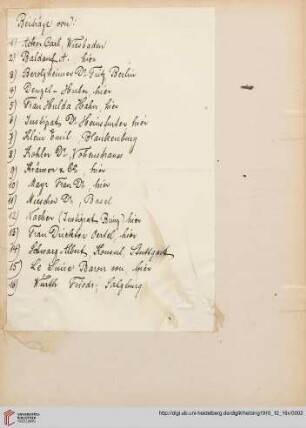 Beiträge von:
1) Acker Carl, Wiesbaden
2) Baldauf A. hier
3) Berolzheimer Dr Fritz Berlin
4) Denzel-Huber, hier
5) Frau Hilda Hahn, hier
6) Justizrat Dr. hier
7) Klein Emil, Blankenburg
8) Kohler Dr. Vohenstrauss
9) Krämer & Co, hier
10) Mayr Fran Dr, hier
11) Miescher Dr., Basel
12) (Justizrat) hier
13) Frau Direktor Oertel, hier
14) Schwarz Albert, Konsul, Stuttgart
15) Le Suire Baron von hier
16) Würth Friedr. Salzburg
http://digi.ub.uni-heidelberg.de/diglit/helbing1910_12_16x/0002
UNIVERSITÄTS-
BIBLIOTHEK
HEIDELBERG